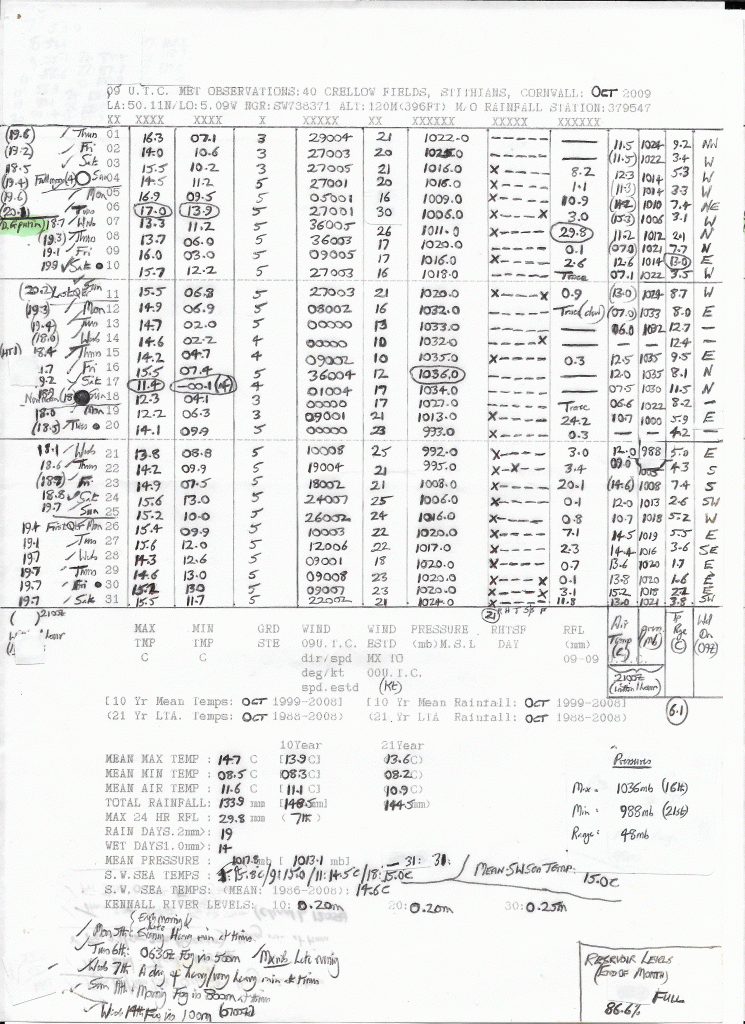 09 U.T.C. MET OBSERVATIONS:40 CRELLOW FIELDS, STITHIANS, CORNWALL: OCT 2009
LA:50.11N/LO:5.09W NGR:SW738371 ALT:120M(396FT) M/O RAINFALL STATION:379547
XX XXXX XXXX X XXXXX XX XXXXXX XXXXX XXXXXX
(19.6) Thun 01 16.3 07.1 3 29004 21 1022.0 ----- — 11.5 1024 9.2 NW
(19.2) Fri 02 14.0 10.6 3 27003 20 1025.0 ----- — (11.5) 1022 3.4 W
18.5 Sat 03 15.5 10.2 3 27005 21 1016.0 X---- 8.2 12.3 1014 5.3 W
(19.4) Full moon (4) Sun 04 14.5 11.2 5 27001 20 1016.0 X---- 1.1 1014 3.3 W
(19.6) Mon 05 16.9 09.5 5 05001 16 1009.0 X---- 10.9 (14.2) 1010 7.4 NE
Tues 06 17.0 13.9 5 27001 30 1006.0 X---X 3.0 (15.3) 1006 3.1 W
18.7 Wed 07 13.3 11.2 5 36005 26 1011.0 X---- 29.8 11.2 1012 2.1 N
(19.3) Thun 08 13.7 06.0 5 36003 17 1020.0 ----- 0.1 (07.0) 1021 7.7 N
19.1 Fri 09 16.0 03.0 5 09005 17 1016.0 X---- 2.6 12.6 1014 13.0 E
199 Sat 10 15.7 12.2 5 27003 16 1018.0 ----- Trace 07.1 1022 3.5 W
(20.2) Last Qtr Sun 11 15.5 06.8 5 27003 21 1020.0 X---X 0.9 (13.0) 1024 8.7 W
(19.3) Mon 12 14.9 06.9 5 08002 16 1032.0 ----- Trace (dew) (07.0) 1033 8.0 E
(19.4) Tues 13 14.7 02.0 5 00000 13 1033.0 ----- — 06.0 1032 12.7 —
(18.6) Wed 14 14.6 02.2 4 00000 10 1032.0 ----X — — — 12.4 —
18.4 Thun 15 14.2 04.7 4 09002 10 1035.0 X---- 0.3 12.5 1035 9.5 E
Fri 16 15.5 07.4 5 36004 12 1036.0 ----- — 12.0 1035 8.1 N
9.2 Sat 17 11.4 -00.1 4 01004 17 1034.0 ----- — 07.5 1030 11.5 N
New moon Sun 18 12.3 04.1 3 00000 17 1027.0 ----- Trace 06.6 1022 8.2 —
18.0 Mon 19 12.2 06.3 3 09001 21 1013.0 X---- 24.2 10.7 1000 5.9 E
(18.5) Tues 20 14.1 09.9 5 00000 23 993.0 X---- 0.3 — — 4.2 —
18.1 Wed 21 13.8 08.8 5 10008 25 992.0 X---- 3.0 12.0 988 5.0 E
18.6 Thun 22 14.2 09.9 5 19004 21 995.0 X-X-- 3.4 09.0 1003 4.3 S
Fri 23 14.9 07.5 5 18002 21 1008.0 X---- 20.1 (14.6) 1008 7.4 S
18.8 Sat 24 15.6 13.0 5 24007 25 1006.0 X---- 0.1 12.0 1013 2.6 SW
19.7 Sun 25 15.2 10.0 5 26002 24 1016.0 X---- 0.8 10.7 1018 5.2 W
19.4 First Qtr Mon 26 15.4 09.9 5 10003 22 1020.0 X---- 7.1 14.5 1019 5.5 E
19.1 Tues 27 15.6 12.0 5 12006 22 1017.0 X---- 2.3 14.4 1016 3.6 SE
19.7 Wed 28 14.3 12.6 5 09001 18 1020.0 X---- 0.7 13.6 1020 1.7 E
19.7 Thun 29 14.6 13.0 5 09008 23 1020.0 X---X 0.1 13.8 1020 1.6 E
19.7 Fri 30 15.2 13.0 5 09007 23 1020.0 X---X 3.1 15.2 1018 2.2 E
19.7 Sat 31 15.5 11.7 5 22002 21 1024.0 X---X 11.8 13.0 1021 3.8 SW
( ) 2100Z
(21) R H T S F
MAX MIN GRD WIND WIND PRESSURE RHTSF RFL
TMP TMP STE 09U.T.C. ESTD (mb)M.S.L DAY (mm)
C C dir/spd MX TO 09-09
deg/kt 00U.T.C.
spd.estd (Kt)
Air Temp (C)
(mb)
Rge (C)
Wd Dn (09Z)
2100Z
(within 1 hour)
[10 Yr Mean Temps: OCT 1999-2008] [10 Yr Mean Rainfall: OCT 1999-2008]
(21 Yr LTA. Temps: OCT 1988-2008) (21.Yr LTA Rainfall: OCT 1988-2008)
6.1
10Year 21Year
MEAN MAX TEMP : 14.7 C [13.9C] (13.6C)
MEAN MIN TEMP : 08.5 C [08.3C] (08.2C)
MEAN AIR TEMP : 11.6 C [11.1 C] (10.9C)
TOTAL RAINFALL: 133.9 mm [148.5mm] (144.5mm)
MAX 24 HR RFL : 29.8 mm ( 7th )
RAIN DAYS.2mm>: 19
WET DAYS1.0mm>: 14
MEAN PRESSURE : 1017.8 mb [ 1013.1 mb] — 31: 31:
S.W.SEA TEMPS : 1:15.8C/9:15.0/11:14.5C/18:15.0C
MEAN SW Sea TEMP: 15.0C
S.W. SEA TEMPS: (MEAN: 1986-2008): 14.6C
KENNALL RIVER LEVELS: 10: 0.20m 20: 0.20m 30: 0.25m
Pressures
Max: 1036mb (16th)
Min: 988mb (21st)
Range: 48mb
{Early morning &
Mon 5th: Evening Heavy rain at times
Tues 6th: 0630Z Fog vis 500m / Max mb Late evening
Wed 7th A day of heavy/very heavy rain at times
Sun 11th: Morning Fog vis 800m at times
Wed 14th Fog vis 100m (0700Z)
RESERVOIR LEVELS
(END OF MONTH)
86.6% FULL